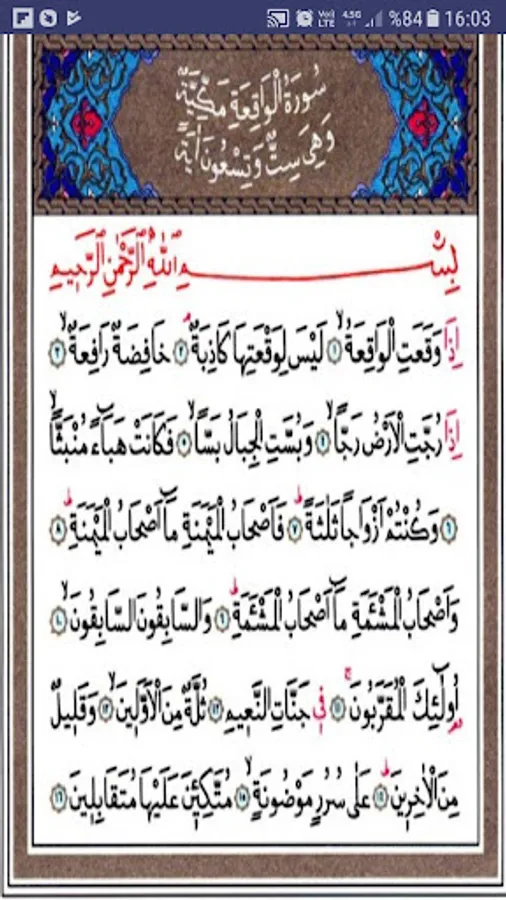 %84 16:03
VoLTE 4.5G
سُورَةُ الْوَاقِعَةِ مَكِّيَّةٌ
وَهِيَ سِتٌّ وَتِسْعُونَ اٰيَةً
بِسْمِ اللّٰهِ الرَّحْمٰنِ الرَّحِيمِ
اِذَا وَقَعَتِ الْوَاقِعَةُۙ ١ لَيْسَ لِوَقْعَتِهَا كَاذِبَةٌۢ ٢ خَافِضَةٌ رَافِعَةٌۙ ٣
اِذَا رُجَّتِ الْاَرْضُ رَجًّاۙ ٤ وَبُسَّتِ الْجِبَالُ بَسًّاۙ ٥ فَكَانَتْ هَبَٓاءً مُنْبَثًّاۙ
٦ وَكُنْتُمْ اَزْوَاجًا ثَلٰثَةًۜ ٧ فَاَصْحَابُ الْمَيْمَنَةِ مَٓا اَصْحَابُ الْمَيْمَنَةِۜ ٨
وَاَصْحَابُ الْمَشْـَٔمَةِ مَٓا اَصْحَابُ الْمَشْـَٔمَةِۜ ٩ وَالسَّابِقُونَ السَّابِقُونَۙ ١٠
اُو۬لٰٓئِكَ الْمُقَرَّبُونَۚ ١١ ف۪ي جَنَّاتِ النَّع۪يمِ ١٢ ثُلَّةٌ مِنَ الْاَوَّل۪ينَۙ ١٣ وَقَل۪يلٌ
مِنَ الْاٰخِر۪ينَۜ ١٤ عَلٰى سُرُرٍ مَوْضُونَةٍۙ ١٥ مُتَّكِـ۪ٔينَ عَلَيْهَا مُتَقَابِل۪ينَ ١٦